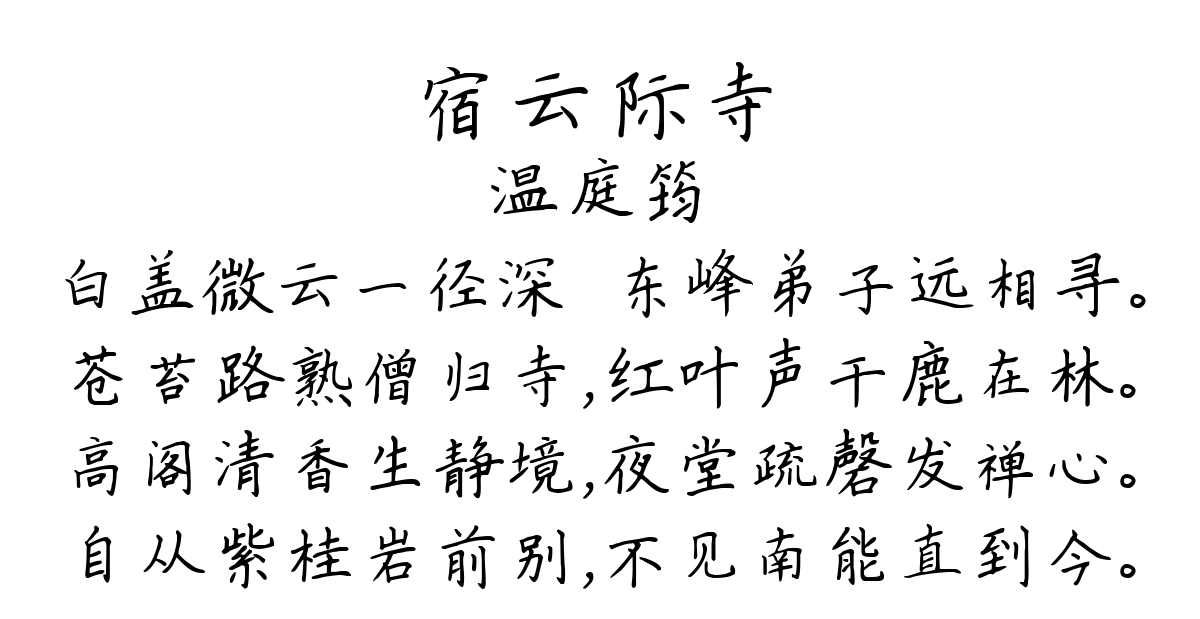 宿云际寺
温庭筠
白盖微云一径深 东峰弟子远相寻。
苍苔路熟僧归寺,红叶声干鹿在林。
高阁清香生静境,夜堂疏磬发禅心。
自从紫桂岩前别,不见南能直到今。